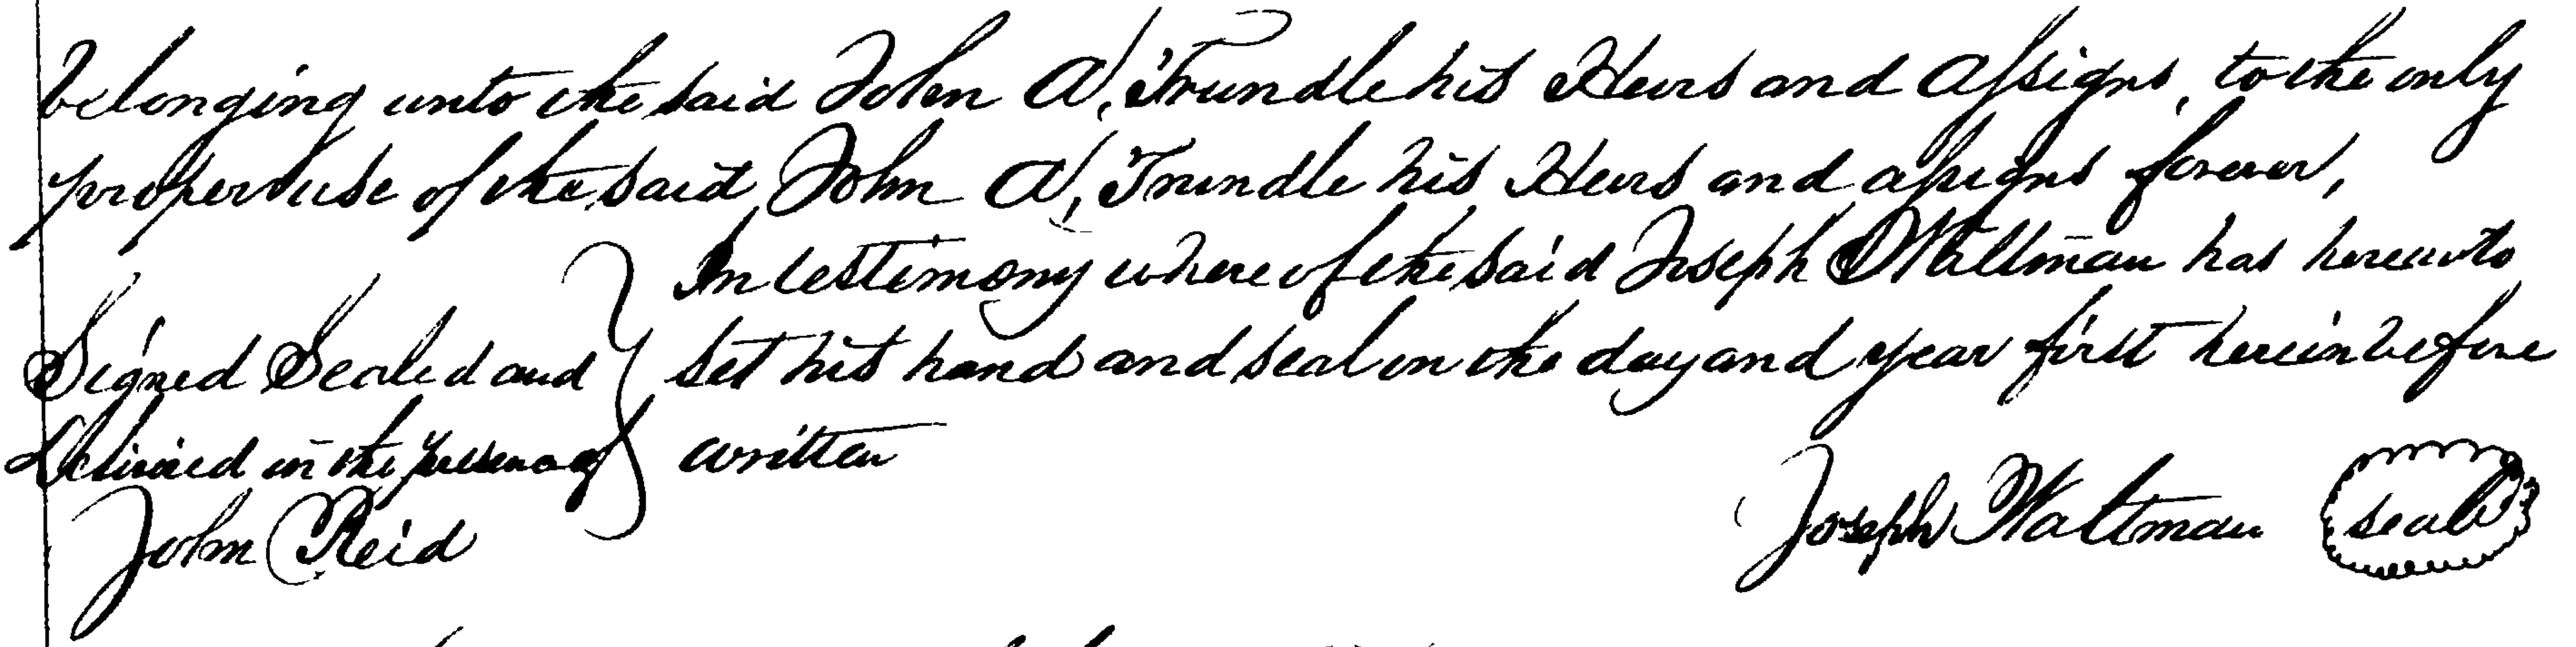 belonging unto the said John A, Trundle his Heirs and Assigns, to the only
proper use of the said John A, Trundle his Heirs and assigns forever,
In testimony whereof the said Joseph Waltman has hereunto
Signed Sealed and } set his hand and seal on the day and year first herein before
Delivered in the presence of written
John Reid Joseph Waltman seal